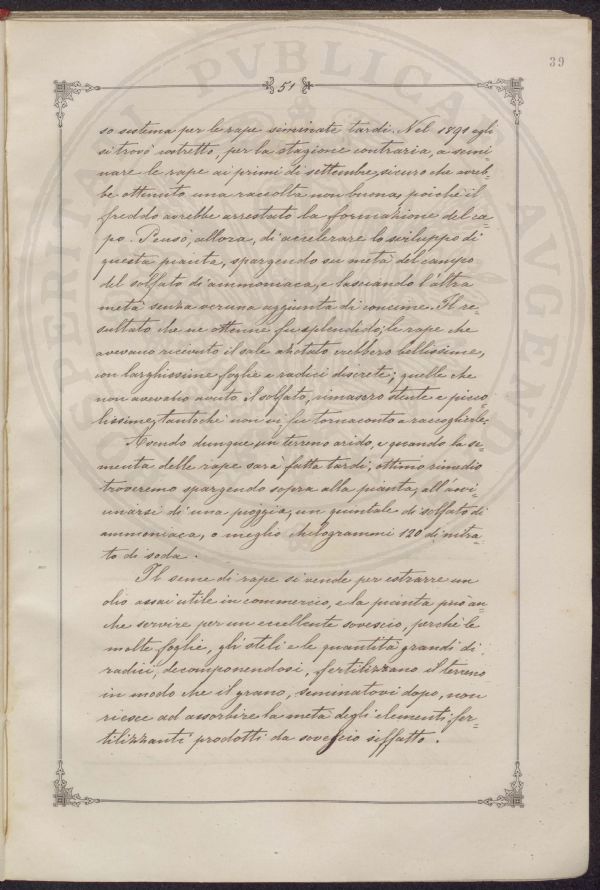 39
51
so sistema per le rape seminate tardi. Nel 1891 egli
si trovò costretto, per la stagione contraria, a semi=
nare le rape ai primi di settembre, sicuro che avreb=
be ottenuto una raccolta non buona, poichè il
freddo avrebbe arrestato la formazione del ca=
po. Pensò, allora, di accelerare lo sviluppo di
questa pianta, spargendo su metà del campo
del solfato di ammoniaca, e lasciando l'altra
metà senza veruna aggiunta di concime. Il re=
sultato che ne ottenne fu splendido; le rape che
avevano ricevuto il sale azotato crebbero bellissime,
con larghissime foglie e radici discrete; quelle che
non avevano avuto il solfato, rimasero stente e picco=
lissime, tanto chè non vi fu tornaconto a raccoglierle.
Avendo dunque un terreno arido, e quando la se=
menta delle rape sarà fatta tardi, ottimo rimedio
troveremo spargendo sopra alla pianta, all'avvi=
cinarsi di una pioggia, un quintale di solfato di
ammoniaca, o meglio chilogrammi 120 di nitra=
to di soda.
Il seme di rape si vende per estrarre un
olio assai utile in commercio, e la pianta può an=
che servire per un eccellente sovescio, perchè le
molte foglie, gli steli e le quantità grandi di
radici, decomponendosi, fertilizzano il terreno
in modo che il grano, seminatovi dopo, non
riesce ad assorbire la metà degli elementi fer=
tilizzanti prodotti da sovescio siffatto.
PVBLICAE
PROSPERITATI
AVGENDAE